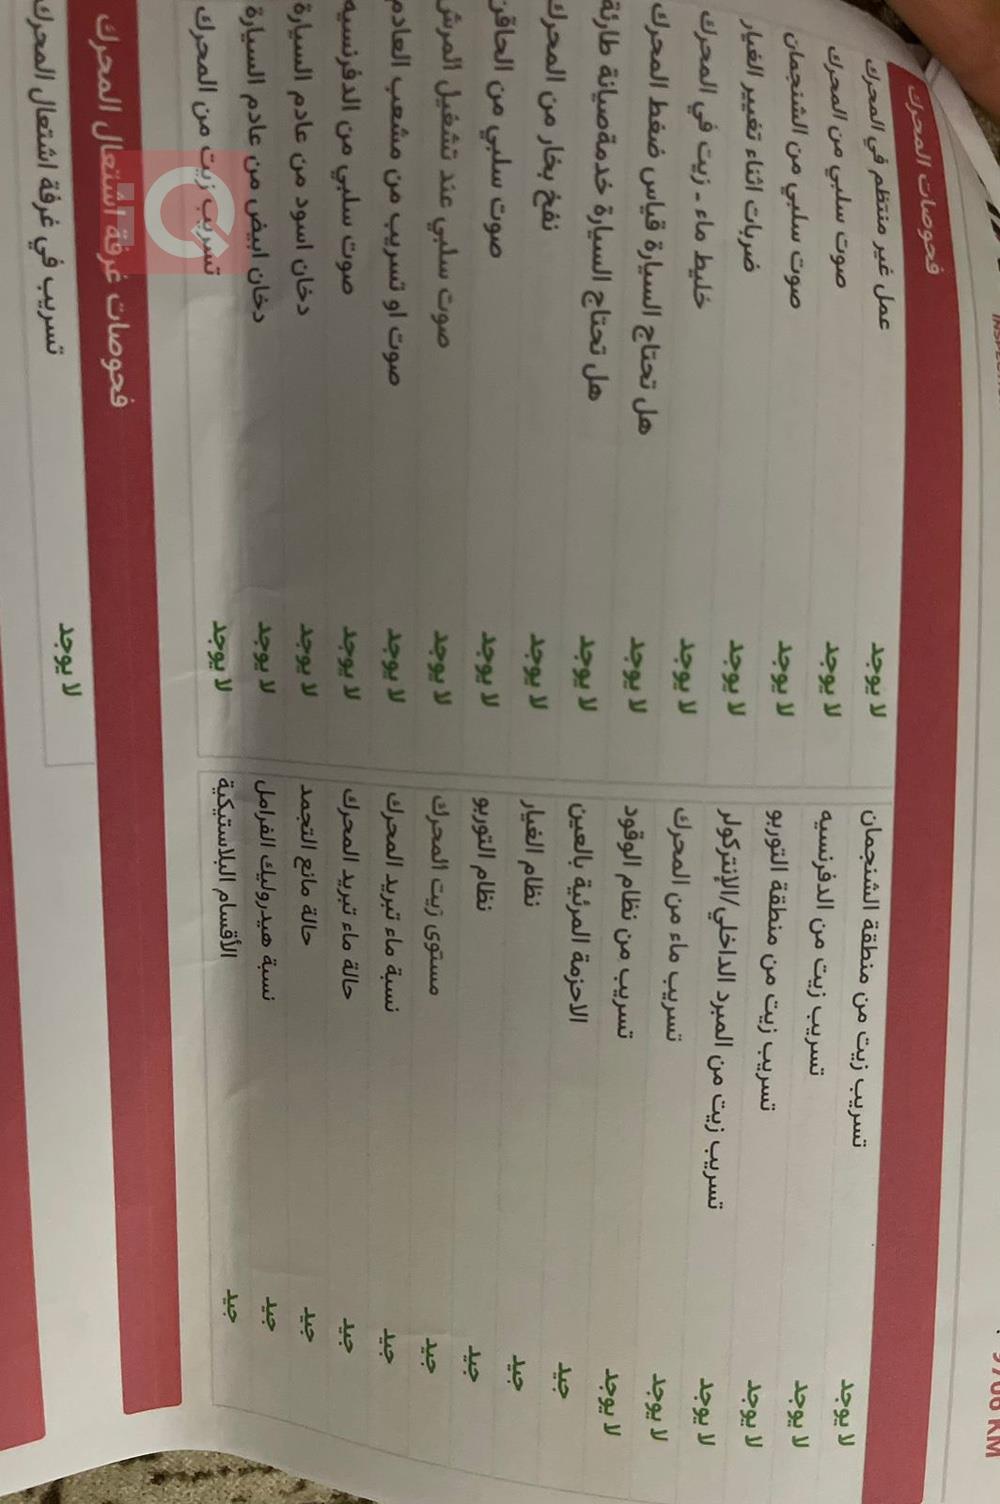 فحوصات المحرك
عمل غير منتظم في المحرك لا يوجد
صوت سلبي من المحرك لا يوجد
صوت سلبي من الشنجمان لا يوجد
ضربات اثناء تغيير الغيار لا يوجد
خليط ماء - زيت في المحرك لا يوجد
هل تحتاج السيارة قياس ضغط المحرك لا يوجد
هل تحتاج السيارة خدمةصيانة طارئة لا يوجد
نفخ بخار من المحرك لا يوجد
صوت سلبي من الحاقن لا يوجد
صوت سلبي عند تشغيل المرش لا يوجد
صوت او تسريب من مشعب العادم لا يوجد
صوت سلبي من الدفرنسيه لا يوجد
دخان اسود من عادم السيارة لا يوجد
دخان ابيض من عادم السيارة لا يوجد
تسريب زيت من المحرك لا يوجد
تسريب زيت من منطقة الشنجمان لا يوجد
تسريب زيت من الدفرنسيه لا يوجد
تسريب زيت من منطقة التوربو لا يوجد
تسريب زيت من المبرد الداخلي/الإنتركولر لا يوجد
تسريب ماء من المحرك لا يوجد
تسريب من نظام الوقود لا يوجد
الاحزمة المرئية بالعين جيد
نظام الغيار جيد
نظام التوربو جيد
مستوى زيت المحرك جيد
نسبة ماء تبريد المحرك جيد
حالة ماء تبريد المحرك جيد
حالة مانع التجمد جيد
نسبة هيدروليك الفرامل جيد
الأقسام البلاستيكية جيد
فحوصات غرفة اشتعال المحرك
تسريب في غرفة اشتعال المحرك لا يوجد
iQ
KM